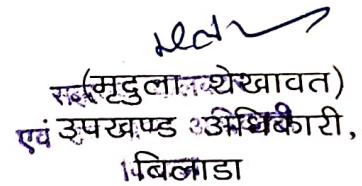 (मृदुला शेखावत)
एवं उपखण्ड अधिकारी,
बिलाडा